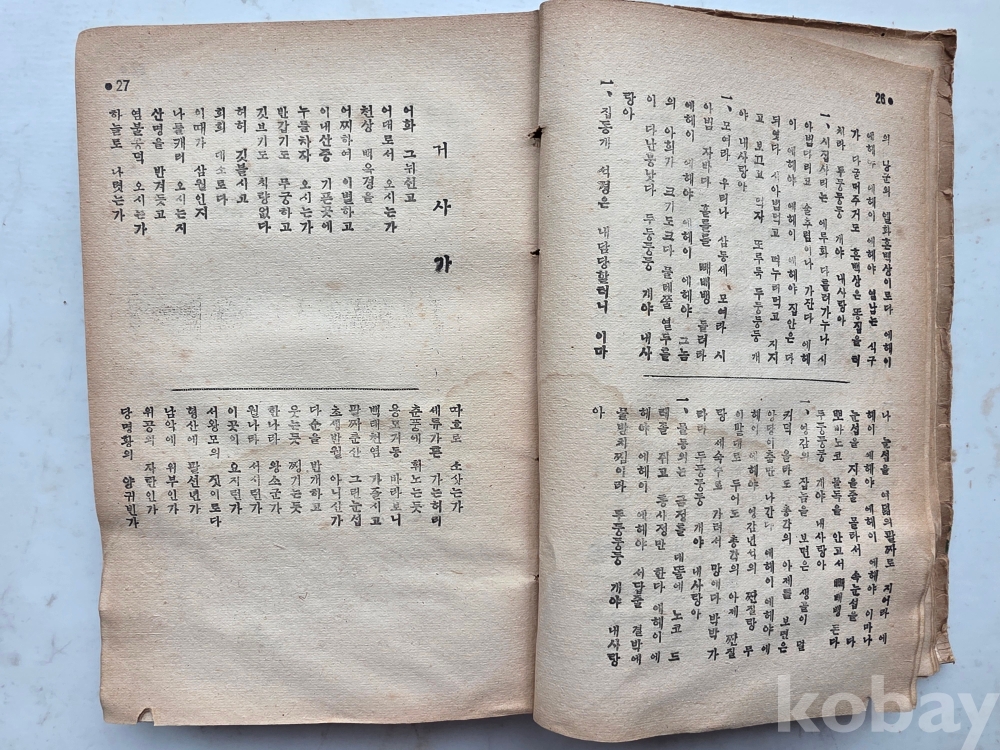 26
의 낭군의 혼백상이로다 에헤이
에헤이 에헤야 열남는 식구
가 다 굶어주거도 혼백상은 똥집을
치라 두둥둥둥 개야 내사랑아
一、시집사리는 에루화 다틀려가누나 시
아범다리고 술추렴이나 가잔다 에헤
이 에헤야 에헤이 에헤야 집안은 다
되엿다 시아범먹고 지지
고 보끄고 먹자 또루룩 두둥둥둥 개
야 내사랑아
一、모여라 우리나 삼동세 모여라 시
아범 자바다 빼빼뱅 들러라
에헤이 에헤야 에헤이 에헤야 그놈
의 아희가 크기도크다 물레줄 열두를
이 다난봉낫다 두둥둥둥 개야 내사
랑아
一、집동개 서경은 내담당할터니 이마
나 눈섭을 여덟의팔짜로 지여라 에
헤이 에헤야 에헤이 에헤야 이마나
눈섭을 지을줄 몰라서 속눈섭을 다
뽀바노코 물독을 안고서 빼빼뱅 돈다
두둥둥둥 개야 내사랑아
一、영감의 잡놈을 보면은 생골이 덜
커덕 을타도 총각의 아제를 보면은
앙당이춤만 나간다 에헤이 에헤야에
헤이 에헤야 영감년석의 짠질탕 무
이발대로 두어도 총각의 아제 짠질
탕 세숫수로 가려서 망애다 박박 가
라라 두둥둥둥 개야 내사랑아
一、물동의는 금정틀 대뜰에 노코 드
레줄 쥐고 통사정만 한다 에헤이에
헤야 에헤이 에헤야 서답줄 결박에
물발치찜이라 두둥둥둥 개야 내사랑
아
27
거사가
어화 그뉘신고
어대로서 오시는가
천상 백옥경을
어찌하여 이별하고
이내산중 기픈곳에
누들차자 오시는가
반갑기도 무궁하고
깃브기도 칙량없다
허허 깃블시고
희희 대소로다
이때가 삼월인지
나를캐러 오시는지
산명을 반겨듯고
염불공덕 오시는가
하늘로 나렷는가
따흐로 소삿는가
세류가튼 가는허리
춘풍에 휘노는듯
용모거동 바라보니
백태천염 가졸지고
팔짜춘산 그린눈섭
초생반월 아니신가
다순을 반개하고
웃는듯 찡기는듯
한나라 왕소군가
월나라 서시런가
이곳의 요지런가
서왕모의 짓이로다
형산에 팔선년가
남악에 위부인가
위꼿의 자란인가
당명황의 양귀빈가
kobay